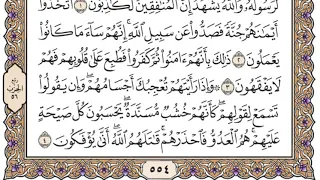 لَرَسُولُهُۥ وَٱللَّهُ يَشْهَدُ إِنَّ ٱلْمُنَٰفِقِينَ لَكَٰذِبُونَ ١ ٱتَّخَذُوٓا۟
أَيْمَٰنَهُمْ جُنَّةً فَصَدُّوا۟ عَن سَبِيلِ ٱللَّهِ ۚ إِنَّهُمْ سَآءَ مَا كَانُوا۟
يَعْمَلُونَ ٢ ذَٰلِكَ بِأَنَّهُمْ ءَامَنُوا۟ ثُمَّ كَفَرُوا۟ فَطُبِعَ عَلَىٰ قُلُوبِهِمْ فَهُمْ
لَا يَفْقَهُونَ ٣ ۞ وَإِذَا رَأَيْتَهُمْ تُعْجِبُكَ أَجْسَامُهُمْ ۖ وَإِن يَقُولُوا۟
تَسْمَعْ لِقَوْلِهِمْ ۖ كَأَنَّهُمْ خُشُبٌ مُّسَنَّدَةٌ ۖ يَحْسَبُونَ كُلَّ صَيْحَةٍ
عَلَيْهِمْ ۚ هُمُ ٱلْعَدُوُّ فَٱحْذَرْهُمْ ۚ قَٰتَلَهُمُ ٱللَّهُ ۖ أَنَّىٰ يُؤْفَكُونَ ٤
ربع
الحزب
٥٦
٥٥٤